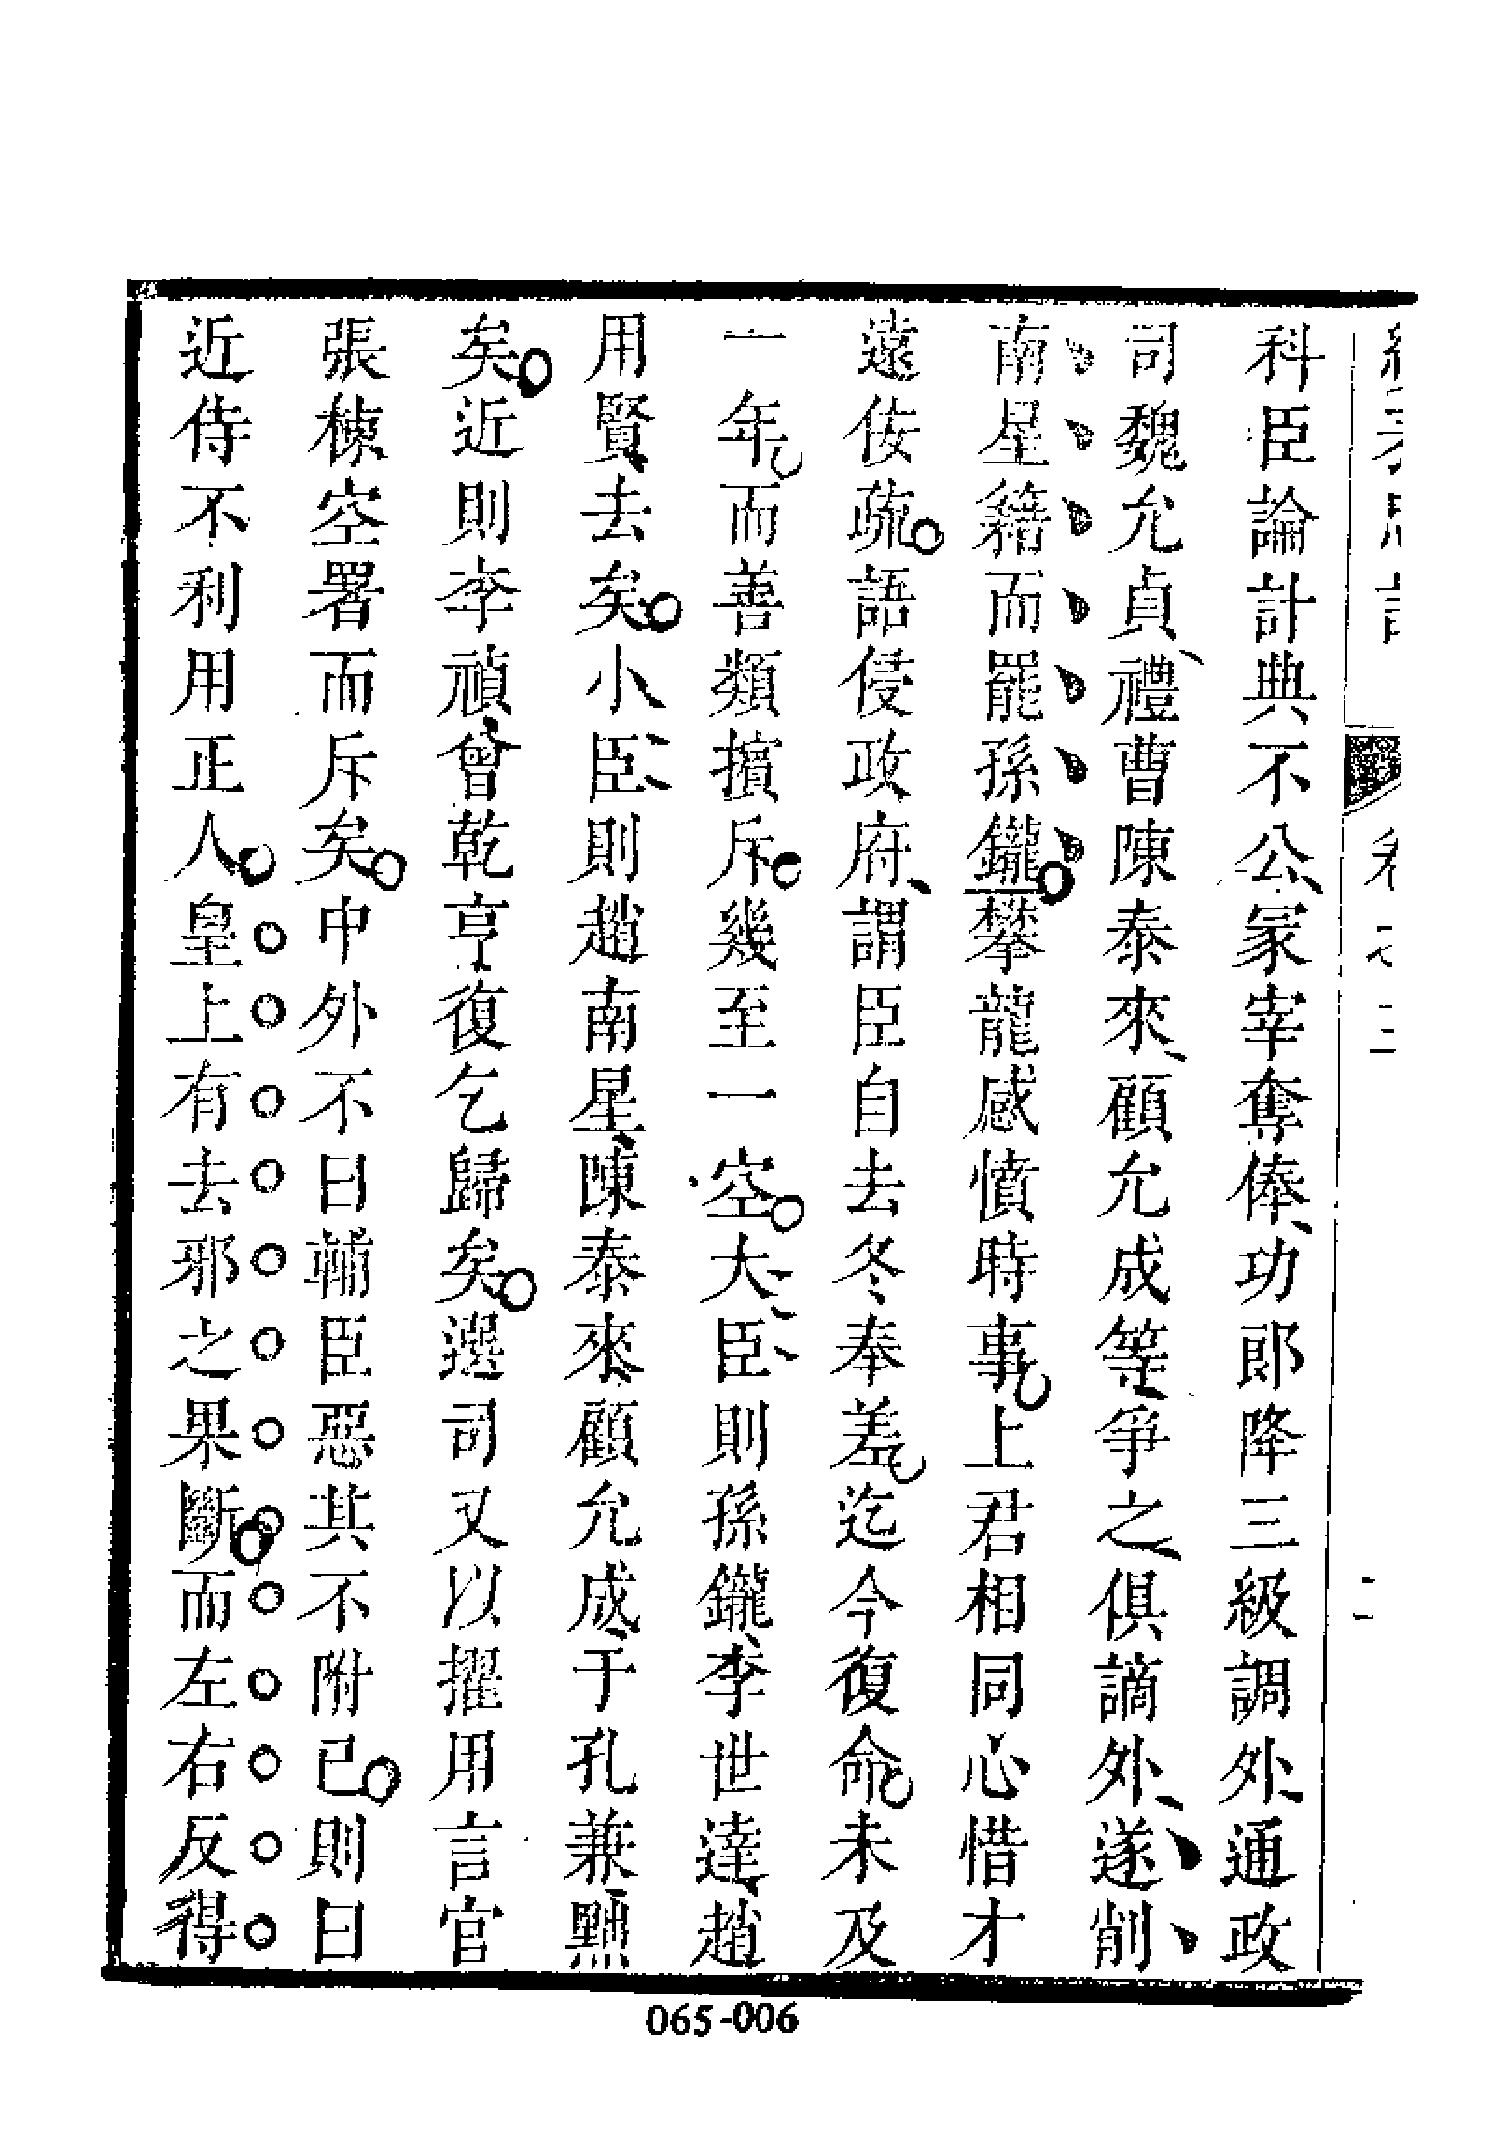 科臣論計典不公冢宰奪俸功郎降三級調外通政
司魏允貞禮曹陳泰來顧允成等爭之俱謫外遂削
南星籍而罷孫鑨攀龍感憤時事上君相同心惜才
遠佞疏語侵政府謂臣自去冬奉差迄今復命未及
一年而善類擯斥幾至一空大臣則孫鑨李世達趙
用賢去矣小臣則趙南星陳泰來顧允成于孔兼黜
矣近則李禎曾乾亨復乞歸矣選司又以擢用言官
張棟空署而斥矣中外不曰輔臣惡其不附已則曰
近侍不利用正人皇上有去邪之果斷而左右反得
卷之三
二
065-006